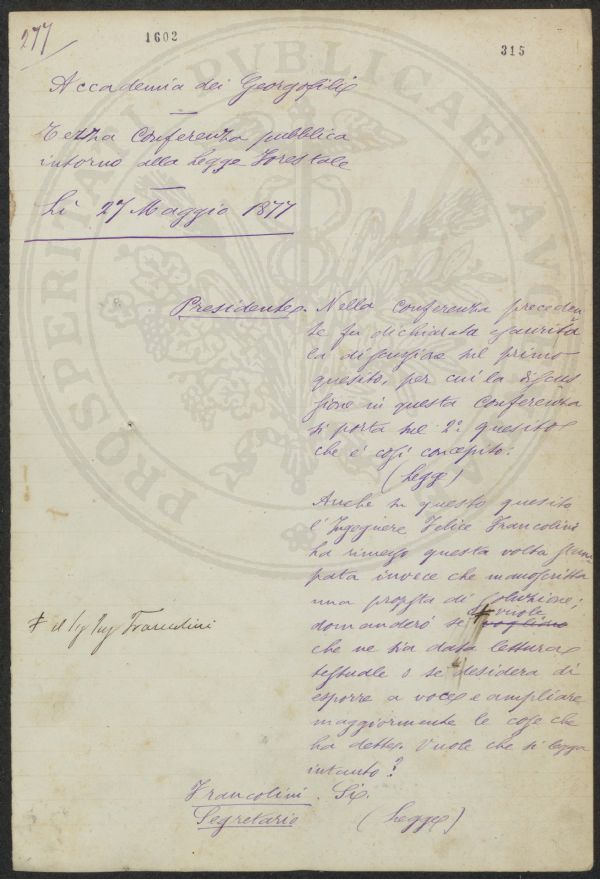 277
1602
315
Accademia dei Georgofili
Terza Conferenza pubblica
intorno alla Legge Forestale
Lì 27 Maggio 1877
PROSPERITATI PUBLICAE
Presidente. Nella conferenza preceden
te fu dichiarata esaurita
la discussione sul primo
quesito, per cui la discus
sione in questa Conferenza
si porta sul 2º quesito
che è così concepito:
(legge)
Anche su questo quesito
l'Ingegnere Felice Francolini
ha rimesso questa volta stam
pata invece che manoscritta
una proposta di soluzione;
domanderò se vuole
vogliono
# il Sig Ing Francolini
che ne sia data lettura
testuale o se desidera di
esporre a voce e ampliare
maggiormente le cose che
ha dette. Vuole che si legga
intanto?
Francolini. Sì.
Segretario (Legge)